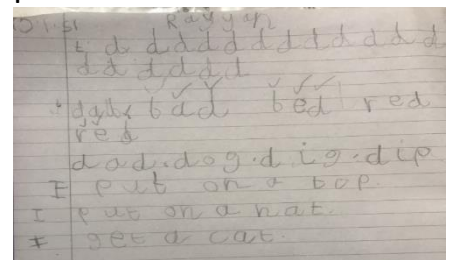 Rayyan
t d d d d d d d d d d d d
d d d d d d
bad bed red
red
dad.dog.dig.dip
I put on a top.
I put on a hat.
I get a cat.